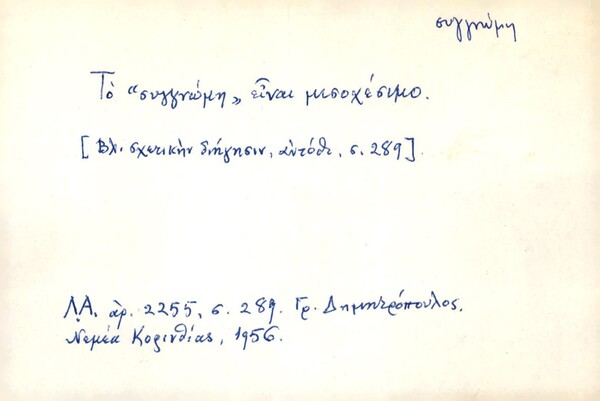 συγγνώμη
Τὸ "συγγνώμη„ εἶναι μισοχέσιμο.
[Βλ. σχετικὴν διήγησιν, αὐτόθι, σ. 289].
Λ.Α. ἀρ. 2255, σ. 289. Γρ. Δημητρόπουλος,
Νεμέα Κορινθίας, 1956.